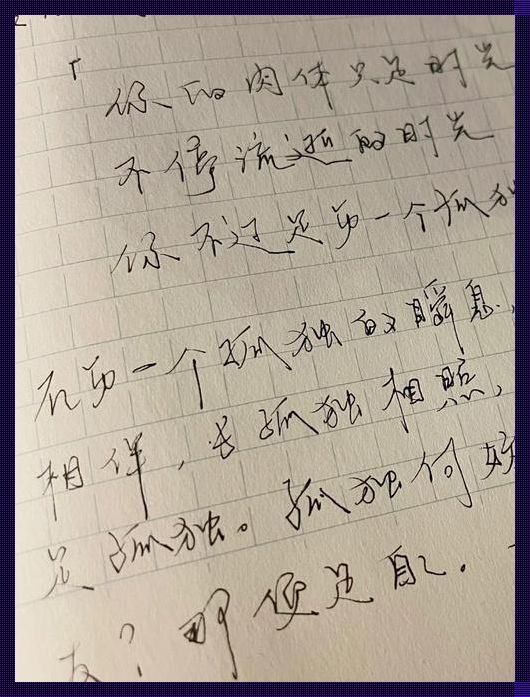 「你的肉体只是时光
不停流逝的时光
你不过是每一个孤独
在每一个孤独的瞬息，
相伴，与孤独相照，
是孤独。孤独何妨
友？那便是配。